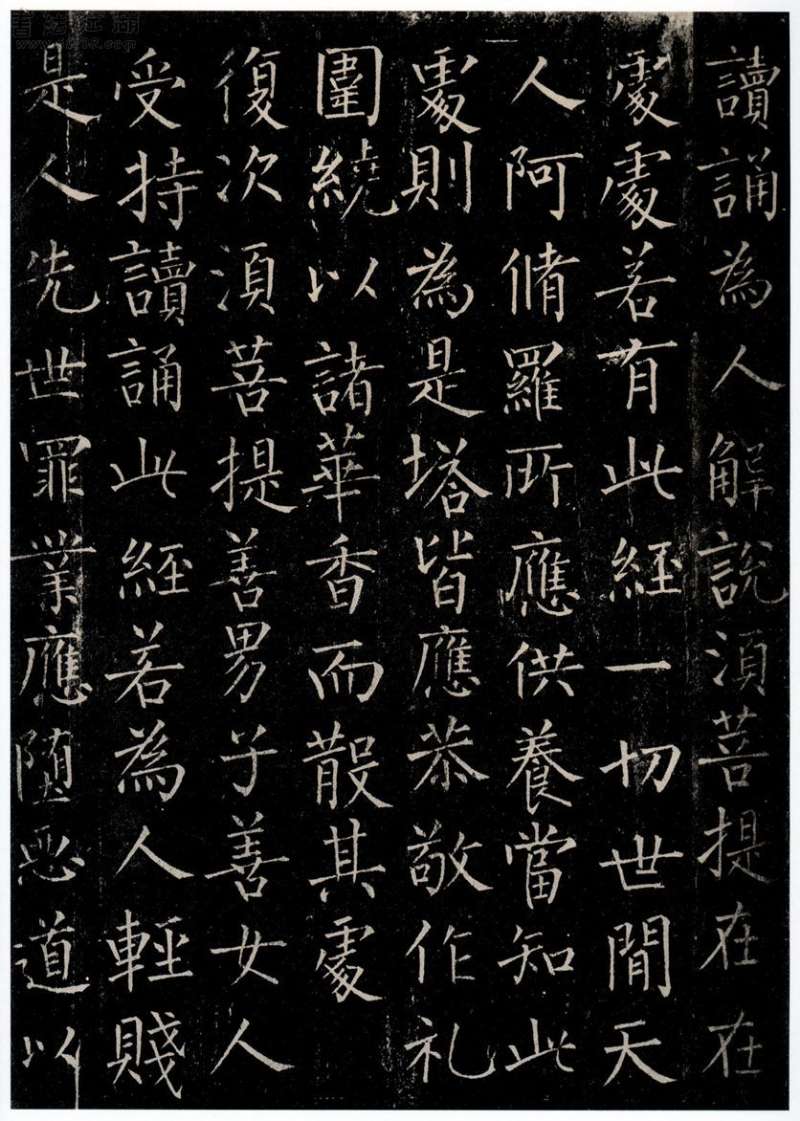 讀誦為人解說須菩提在在
處處若有此經一切世間天
人阿脩羅所應供養當知此
處則為是塔皆應恭敬作礼
圍繞以諸華香而散其處
復次須菩提善男子善女人
受持讀誦此經若為人輕賤
是人先世罪業應墮惡道以